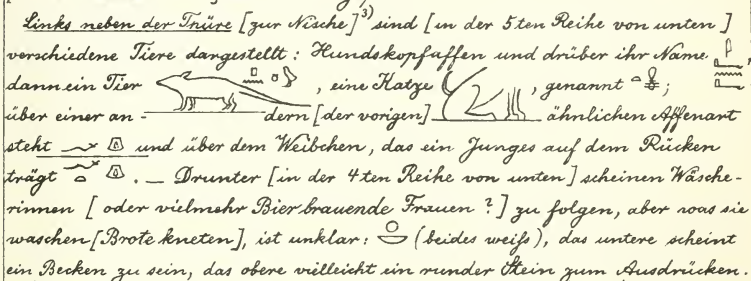 Links neben der Thüre [zur Nische]³⁾ sind [in der 5ten Reihe von unten]
verschiedene Tiere dargestellt: Hundskopfaffen und drüber ihr Name,
dann ein Tier, eine Katze, genannt;
über einer an- dern [der vorigen] ähnlichen Affenart
steht und über dem Weibchen, das ein Junges auf dem Rücken
trägt. — Drunter [in der 4ten Reihe von unten] scheinen Wäsche-
rinnen [oder vielmehr Bierbrauende Frauen?] zu folgen, aber was sie
waschen [Brote kneten], ist unklar: (beides weiſs), das untere scheint
ein Becken zu sein, das obere vielleicht ein runder Stein zum Ausdrücken.